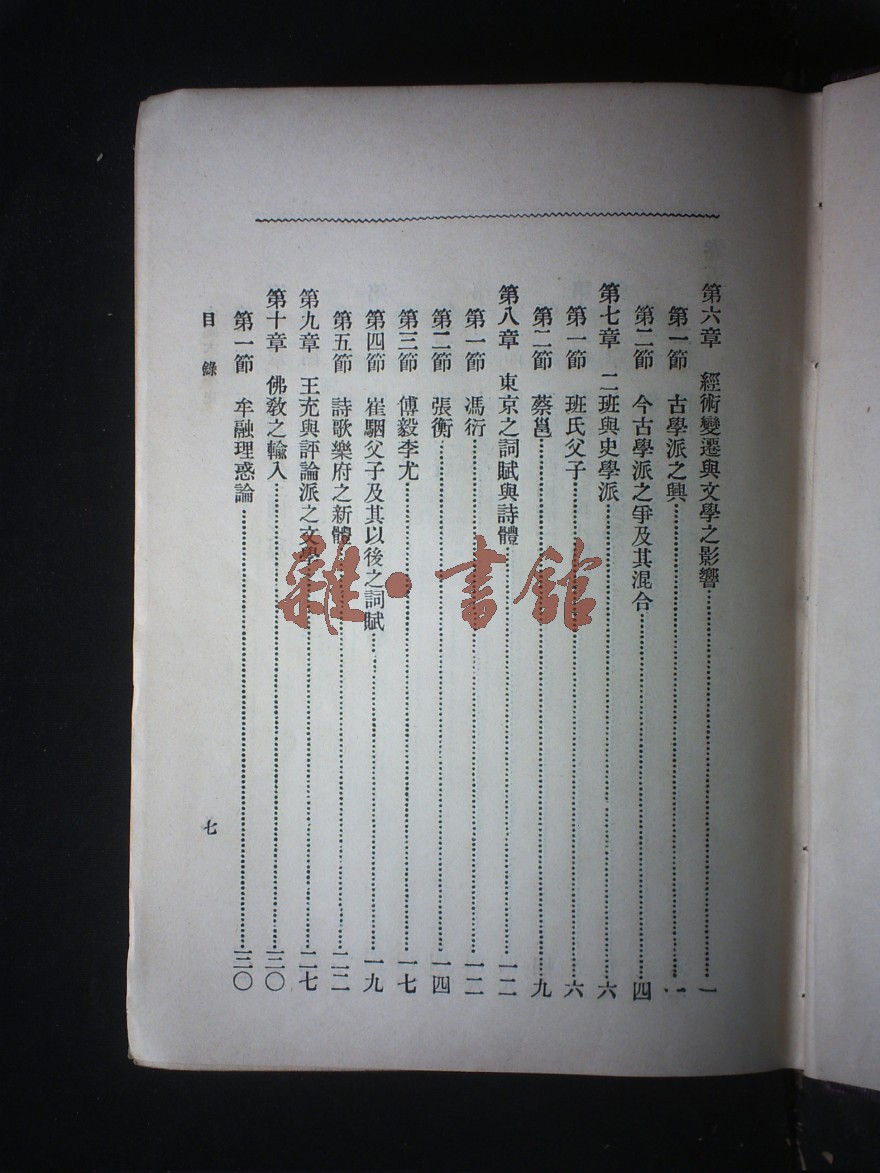 第六章　經術變遷與文學之影響……一
第一節　古學派之興……一
第二節　今古學派之爭及其混合……四
第七章　二班與史學派……六
第一節　班氏父子……六
第二節　蔡邕……九
第八章　東京之詞賦與詩體……一二
第一節　馮衍……一二
第二節　張衡……一四
第三節　傅毅李尤……一七
第四節　崔駰父子及其以後之詞賦……一九
第五節　詩歌樂府之新體……二二
第九章　王充與評論派之文學……二七
第十章　佛教之輸入……三〇
第一節　牟融理惑論……三〇
目錄　七
雜·書館